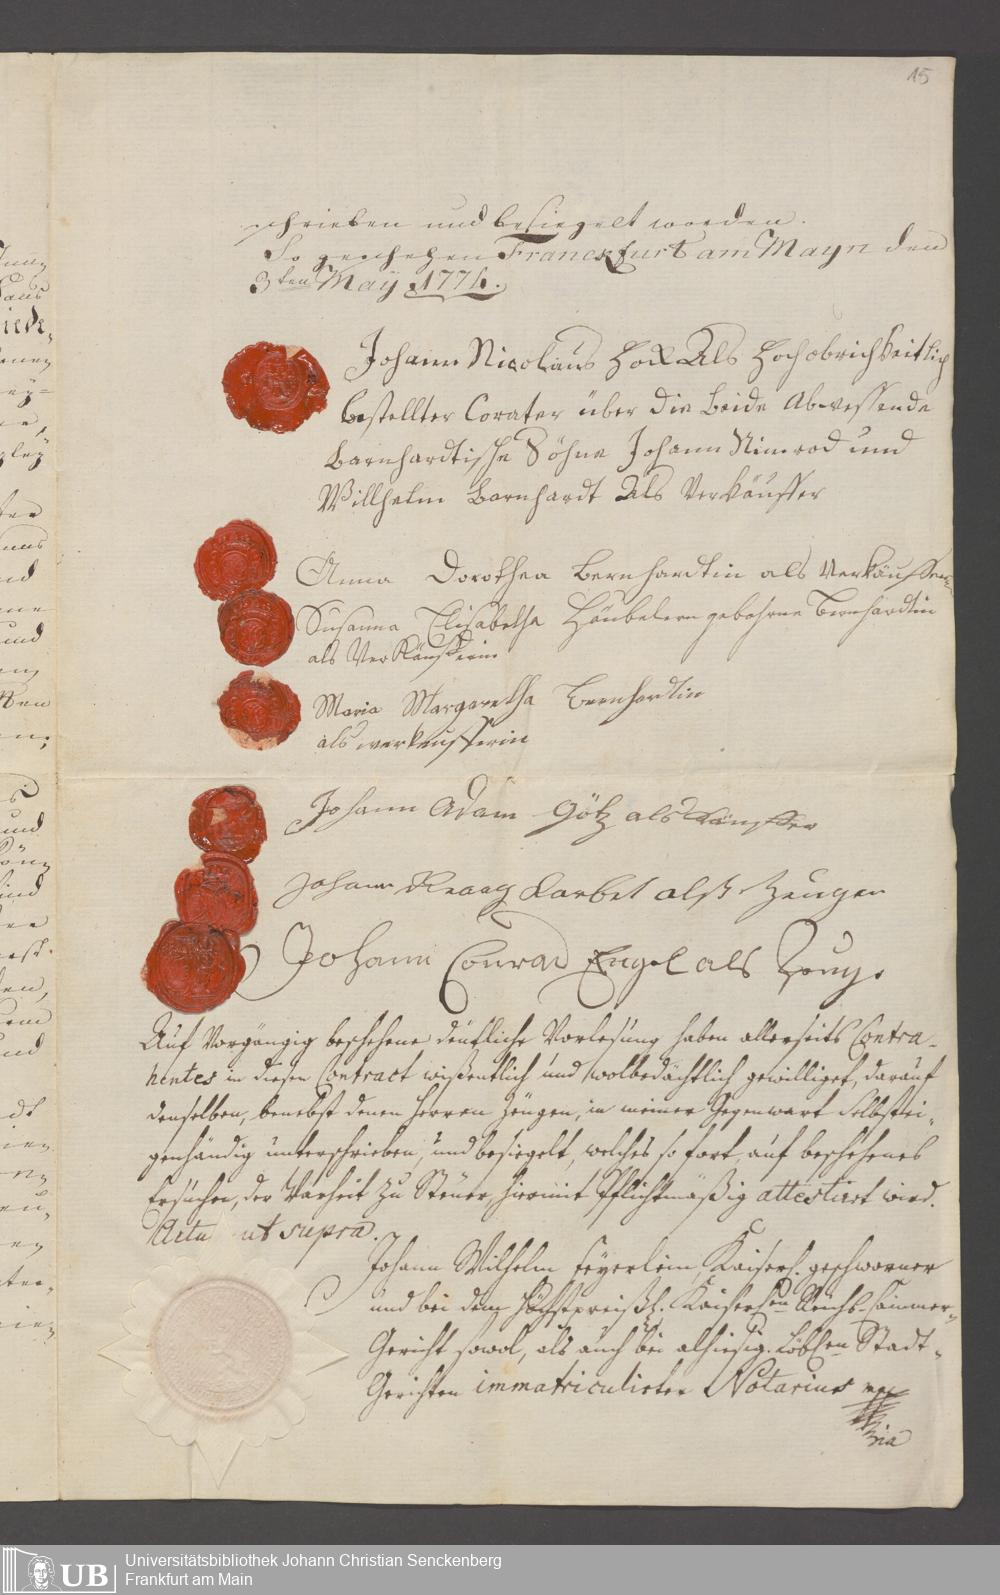 15
schrieben und besiegelt worden.
So geschehen Franckfurt am Mayn den
3ten May 1774.
Johann Nicolaus Als Hochobrichkeitlich
bestellter Corater über die beide Abwessende
Barnhardtische Söhne Johann Nimrod und
Willhelm Barnhardt Als Verkäuffer
Anna Dorothea Bernhardtin als Verkäufferin
Susanna Elisabetha Häubelern gebohrne Bernhardtin
als Verkäufferin
Maria Margaretha Bernhardtin
als verkeufferin
Johann Adam Götz als Käuffer
Johann alß Zeugen
Johann Conrad Engel als Zeuge
Auf Vorgängig beschehene deutliche Vorlesung haben allerseits Contra-
henten in diesen Contract wißentlich und wolbedächtlich gewilliget, darauf
denselben, benebst denen Herren Zeugen, in meiner Gegenwart Selbstei-
genhändig unterschrieben, und besiegelt, welches so fort, auf beschehenes
Ersuchen, der Warheit zu Steuer, hiermit Pflichtmäßig attestiret wird.
Actu ut supra.
Johann Wilhelm Feyerlein, Kaiserl. geschworner
und bei dem Höchstpreißl. Kaiserlen Reichs-Cammer-
Gericht sowol, als auch bei alhiesig. Löblen Stadt-
Gerichten immatriculirter Notarius mpp
ria
Universitätsbibliothek Johann Christian Senckenberg
UB Frankfurt am Main